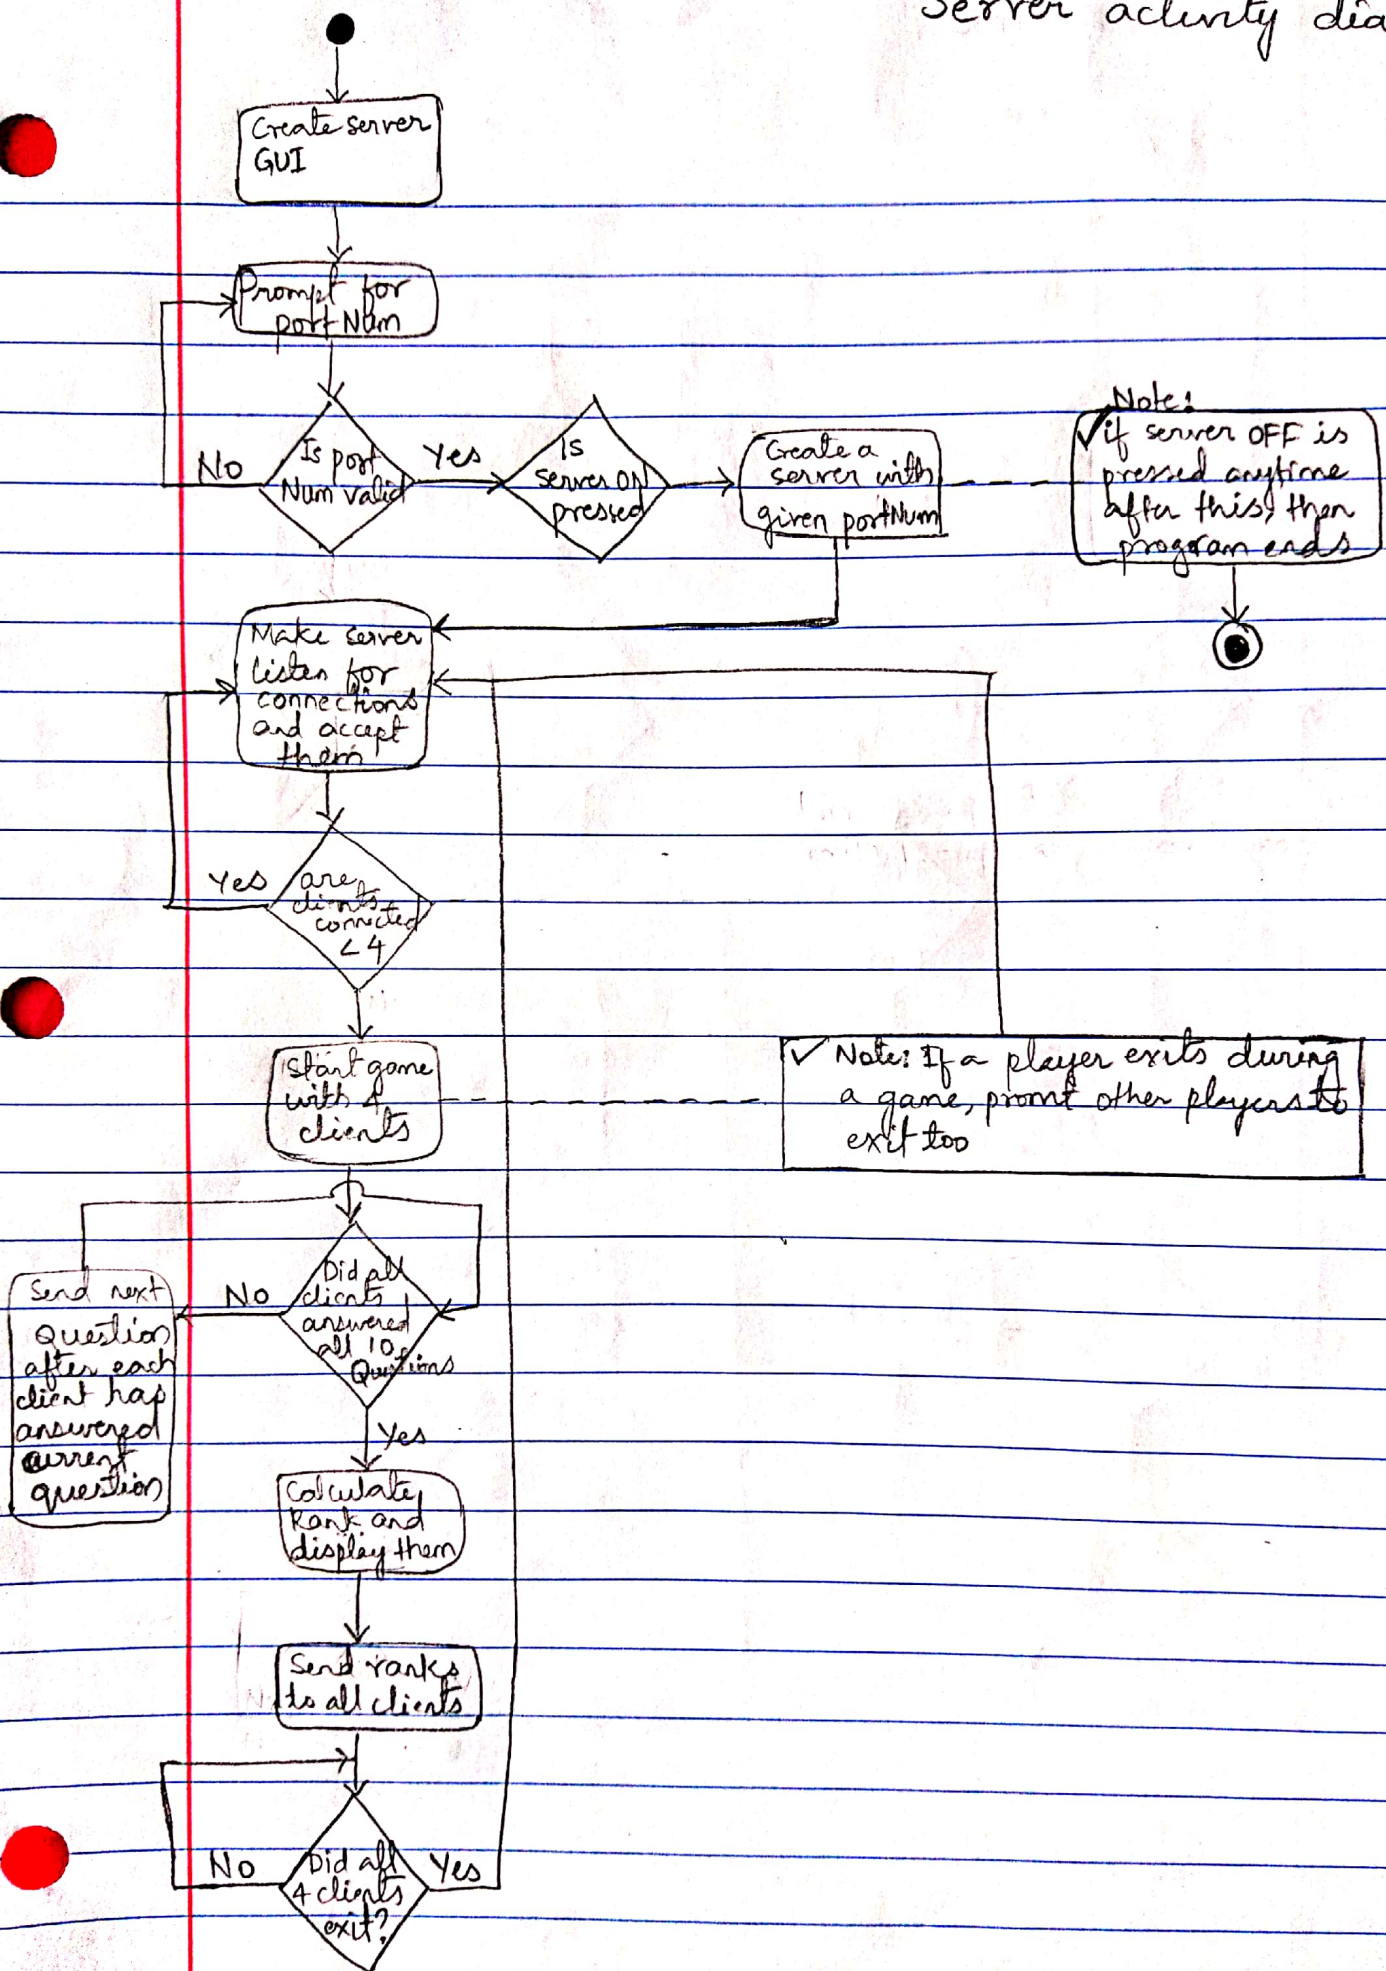 Server activity dia
Create server
GUI
Prompt for
portNum
Is port
Num valid
No
Yes
Is
server ON
pressed
Create a
server with
given portNum
Note:
if server OFF is
pressed anytime
after this, then
program ends
Make server
listen for
connections
and accept
them
Yes
are
clients
connected
< 4
Start game
with 4
clients
Note: If a player exits during
a game, promt other players to
exit too
Did all
clients
answered
all 10
Questions
No
Send next
Question
after each
client has
answered
current
question
Yes
Calculate
Rank and
display them
Send ranks
to all clients
No
Did all
4 clients
exit?
Yes